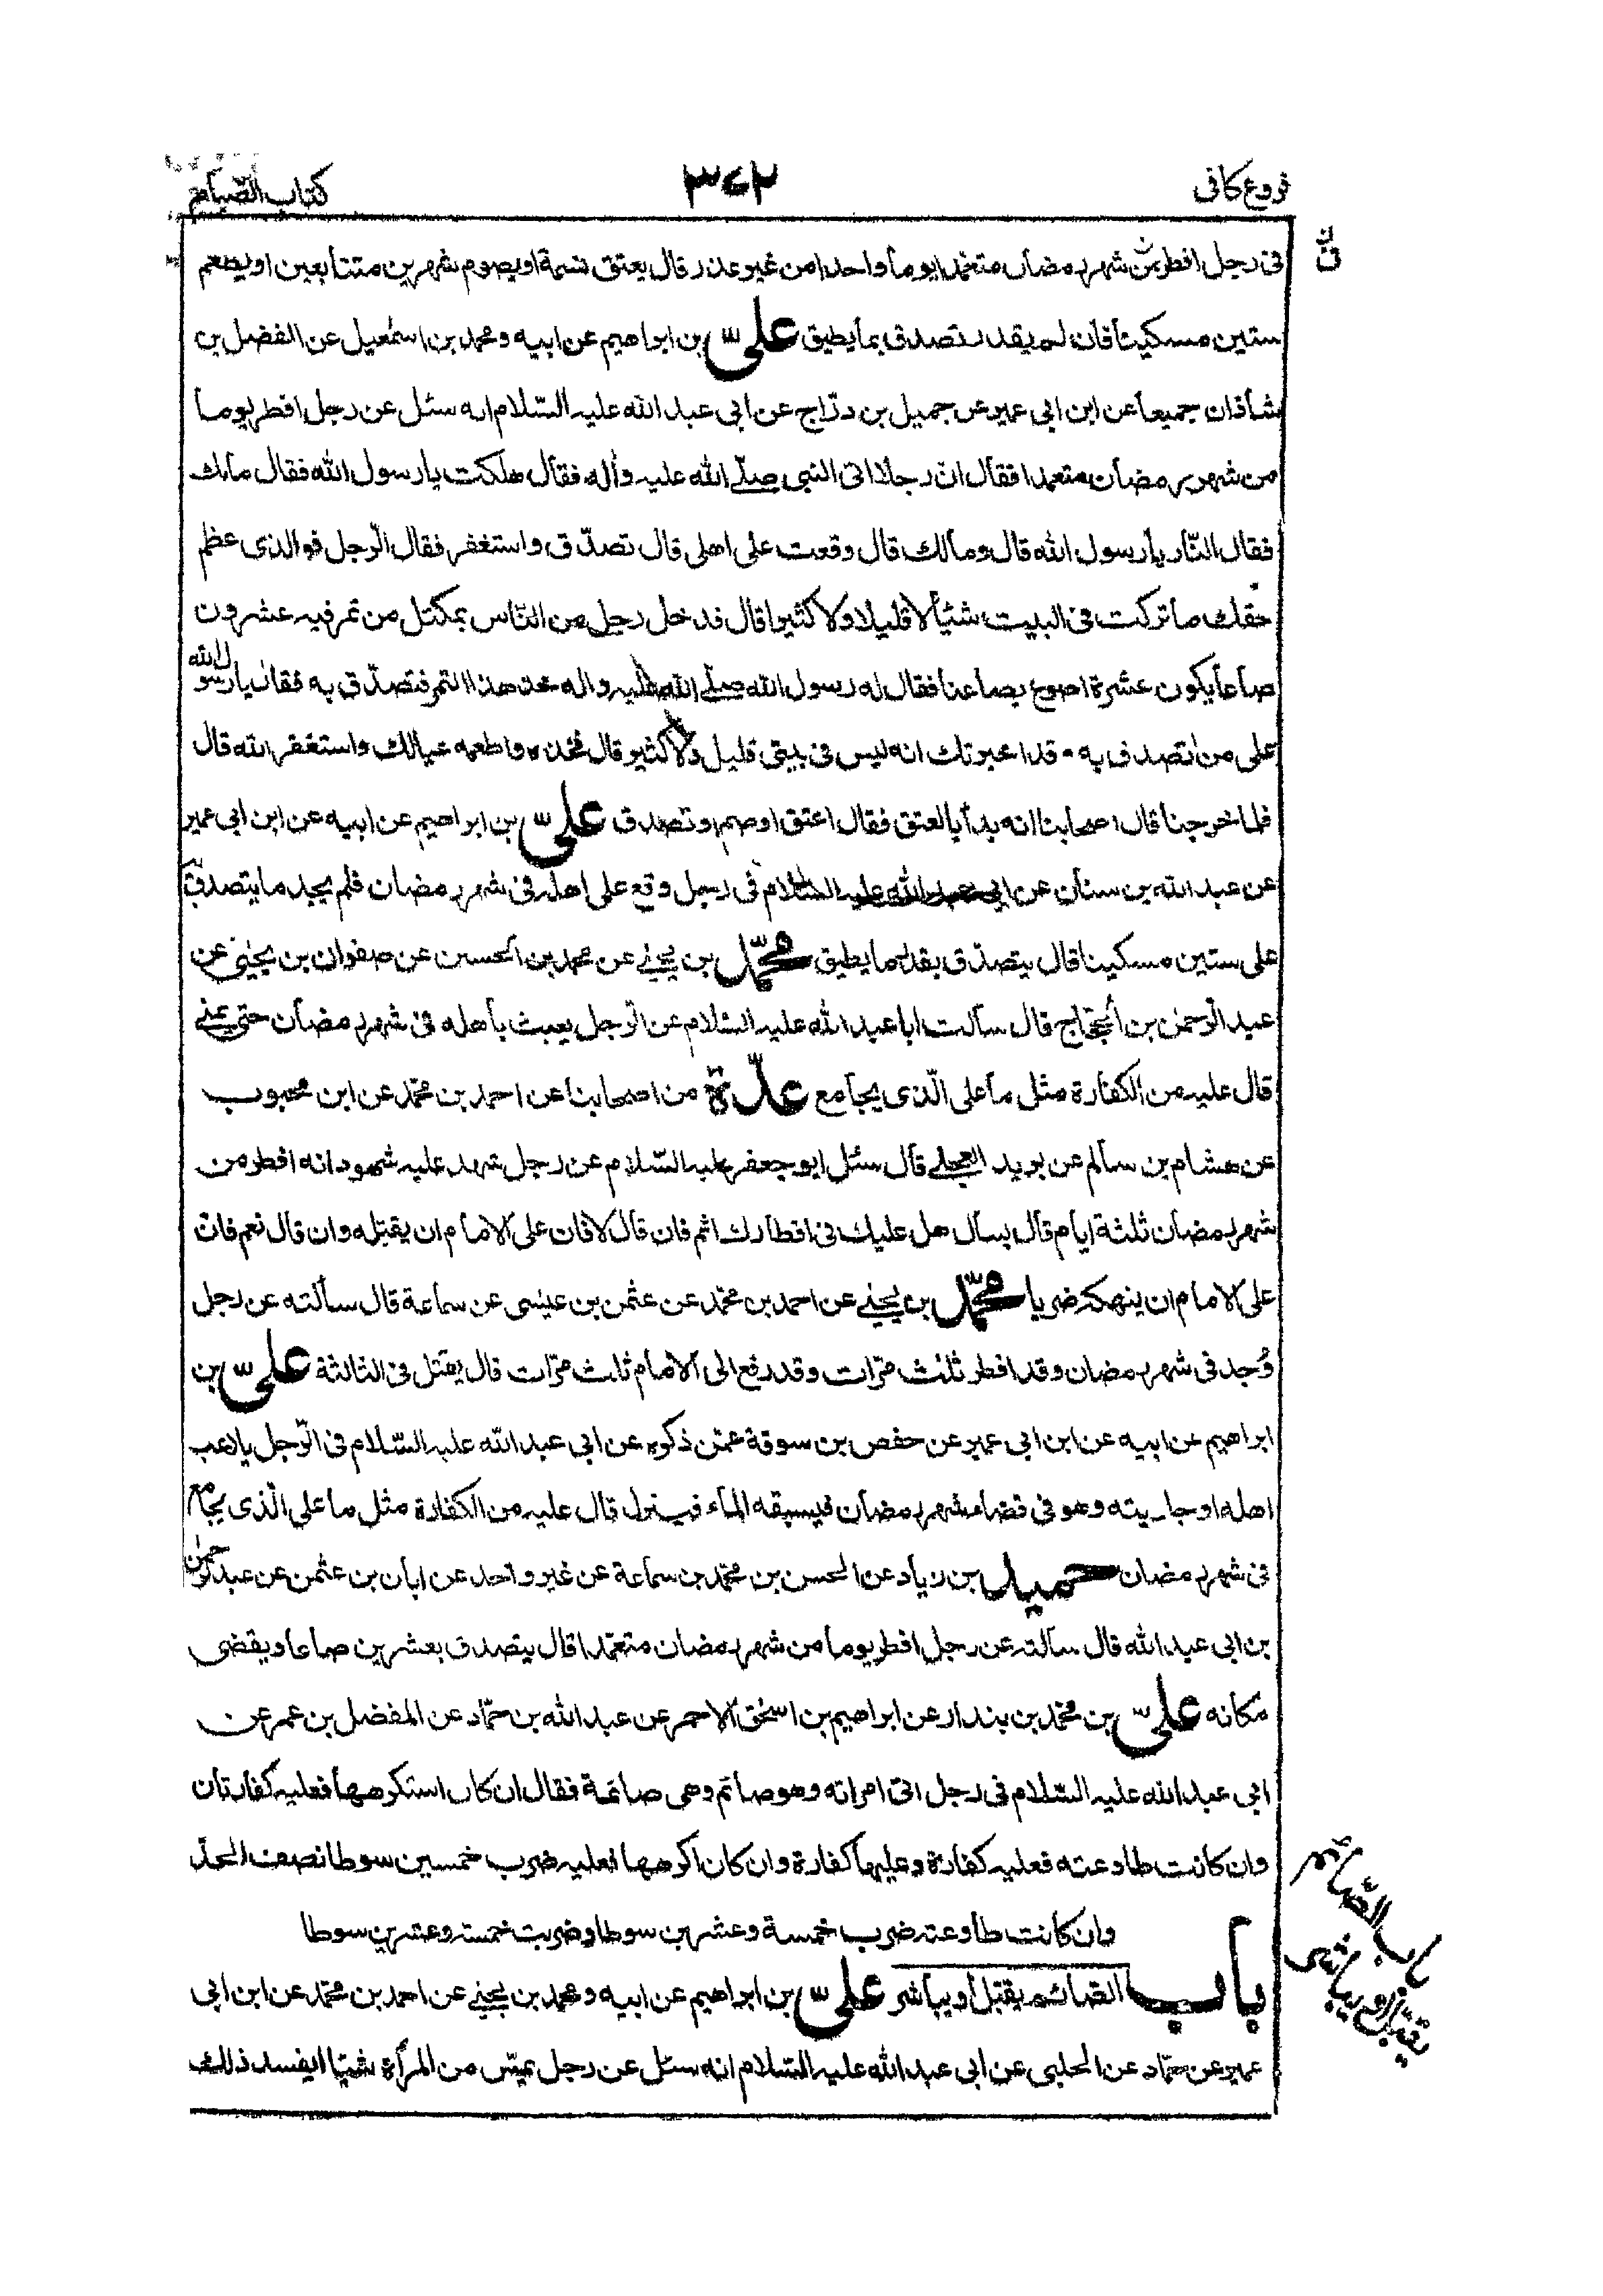 فروع کافی
٣٧٢
کتاب الصیام
فی رجل افطر من شهر رمضان متعمدا یوما واحدا من غیر عذر قال یعتق نسمة او یصوم شهرین متتابعین او یطعم
ستین مسکینا فان لم یقدر تصدق بما یطیق علیّ بن ابراهیم عن ابیه ومحمد بن اسمٰعیل عن الفضل بن
شاذان جمیعا عن ابن ابی عمیر عن جمیل بن درّاج عن ابی عبد الله علیه السّلام انه سئل عن رجل افطر یوما
من شهر رمضان متعمدا فقال انّ رجلا اتی النبی صلّی الله علیه واٰله فقال هلکت یا رسول الله فقال مالک
فقال النّار یا رسول الله قال ومالک قال وقعت علی اهلی قال تصدّق واستغفر فقال الرّجل فوالذی عظم
حقک ما ترکت فی البیت شیئا لا قلیلا ولا کثیرا قال فدخل رجل من النّاس بمکتل من تمر فیه عشرون
صاعا یکون عشرة اصوع بصاعنا فقال له رسول الله صلّی الله علیه واله خذ هذا التمر فتصدّق به فقال یا رسول الله
علی من اتصدق به وقد اخبرتک انه لیس فی بیتی قلیل ولا کثیر قال فخذه واطعمه عیالک واستغفر الله قال
فلما خرجنا قال اصحابنا انه بدأ بالعتق فقال اعتق او صم او تصدق علیّ بن ابراهیم عن ابیه عن ابن ابی عمیر
عن عبد الله بن سنان عن ابی عبد الله علیه السّلام فی رجل وقع علی اهله فی شهر رمضان فلم یجد ما یتصدق به
علی ستین مسکینا قال یتصدّق بقدر ما یطیق محمّد بن یحیٰی عن محمد بن الحسین عن صفوان بن یحیٰی عن
عبد الرّحمٰن بن الحجّاج قال سالت ابا عبد الله علیه السّلام عن الرّجل یعبث باهله فی شهر رمضان حتی یمنی
قال علیه من الکفارة مثل ما علی الّذی یجامع عدّة من اصحابنا عن احمد بن محمّد عن ابن محبوب
عن هشام بن سالم عن برید العجلی قال سئل ابو جعفر علیه السّلام عن رجل شهد علیه شهود انه افطر من
شهر رمضان ثلثة ایام قال یسال هل علیک فی افطارک اثم فان قال لا فان علی الامام ان یقتله وان قال نعم فان
علی الامام ان ینهکه ضربا محمّد بن یحیٰی عن احمد بن محمّد عن عثمٰن بن عیسٰی عن سماعة قال سالته عن رجل
وُجد فی شهر رمضان وقد افطر ثلٰث مرّات وقد رفع الی الامام ثلث مرّات قال یقتل فی الثالثة علیّ بن
ابراهیم عن ابیه عن ابن ابی عمیر عن حفص بن سوقة عمّن ذکره عن ابی عبد الله علیه السّلام فی الرّجل یلاعب
اهله او جاریته وهو فی قضاء شهر رمضان فیسبقه الماء فینزل قال علیه من الکفارة مثل ما علی الّذی یجامع
فی شهر رمضان حمید بن زیاد عن الحسن بن محمّد بن سماعة عن غیر واحد عن ابان بن عثمٰن عن عبد الرحمٰن
بن ابی عبد الله قال سالته عن رجل افطر یوما من شهر رمضان متعمّدا قال یتصدق بعشرین صاعا ویقضی
مکانه علیّ بن محمّد بن بندار عن ابراهیم بن اسحٰق الاحمر عن عبد الله بن حمّاد عن المفضل بن عمر عن
ابی عبد الله علیه السّلام فی رجل اتی امراته وهو صائم وهی صائمة فقال ان کان استکرهها فعلیه کفارتان
وان کانت طاوعته فعلیه کفارة وعلیها کفارة وان کان اکرهها فعلیه ضرب خمسین سوطا نصف الحدّ
وان کانت طاوعته ضرب خمسة وعشرین سوطا وضربت خمسة وعشرین سوطا
باب الصّائم یقبّل او یباشر علیّ بن ابراهیم عن ابیه ومحمد بن یحیٰی عن احمد بن محمّد عن ابن ابی
عمیر عن حمّاد عن الحلبی عن ابی عبد الله علیه السّلام انه سئل عن رجل یمسّ من المرأة شیئا ایفسد ذلک
باب الصّائم
یقبّل او یباشر